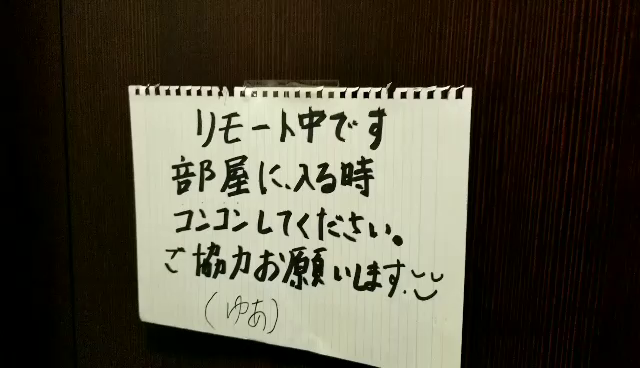 リモート中です
部屋に入る時
コンコンしてください。
ご協力お願いします
(ゆあ)